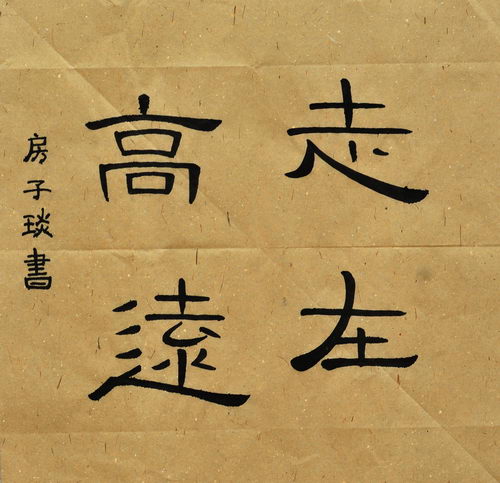 志在
高遠
房子琰書